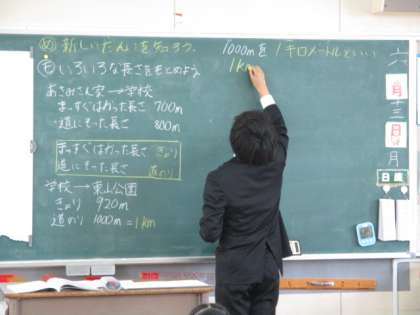 め 新しいたんいを知ろう。
も いろいろな長さをもとめよう。
あさみさん家→学校
まっすぐはかった長さ 700m
道にそった長さ 800m
まっすぐはかった長さ きょり
道にそった長さ 道のり
学校→東山公園
きょり 920m
道のり 1000m=1km
1000mを1キロメートルといい
1km
六月
十三日
月
日直